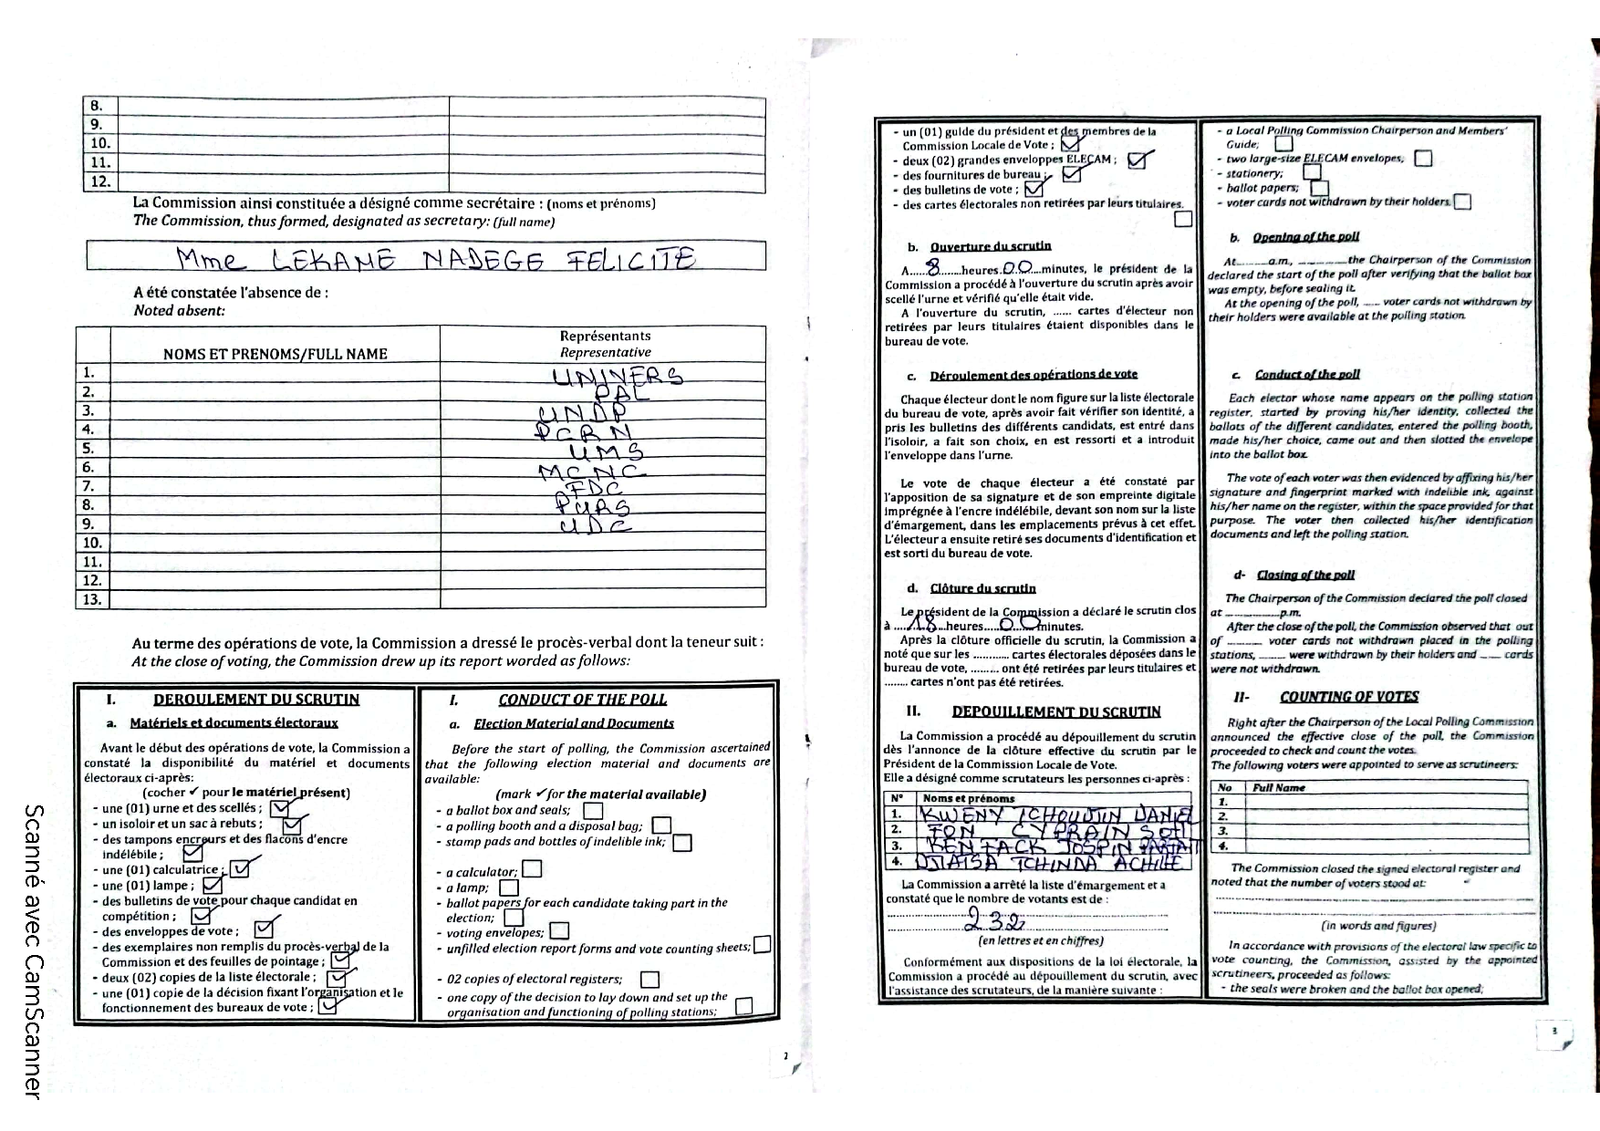 8.
9.
10.
11.
12.
La Commission ainsi constituée a désigné comme secrétaire : (noms et prénoms)
The Commission, thus formed, designated as secretary: (full name)
Mme LEKANE NADEGE FELICITE
A été constatée l'absence de :
Noted absent:
NOMS ET PRENOMS/FULL NAME
Représentants
Representative
1. UNIVERS
2. PAL
3. UNDP
4. PCRN
5. UMS
6. MCNC
7. FDC
8. PURS
9. UDC
10.
11.
12.
13.
Au terme des opérations de vote, la Commission a dressé le procès-verbal dont la teneur suit :
At the close of voting, the Commission drew up its report worded as follows:
I. DEROULEMENT DU SCRUTIN
a. Matériels et documents électoraux
Avant le début des opérations de vote, la Commission a
constaté la disponibilité du matériel et documents
électoraux ci-après:
(cocher ✓ pour le matériel présent)
- une (01) urne et des scellés ; ☑
- un isoloir et un sac à rebuts ; ☑
- des tampons encreurs et des flacons d'encre
indélébile ; ☑
- une (01) calculatrice ; ☑
- une (01) lampe ; ☑
- des bulletins de vote pour chaque candidat en
compétition ; ☑
- des enveloppes de vote ; ☑
- des exemplaires non remplis du procès-verbal de la
Commission et des feuilles de pointage ; ☑
- deux (02) copies de la liste électorale ; ☑
- une (01) copie de la décision fixant l'organisation et le
fonctionnement des bureaux de vote ; ☑
I. CONDUCT OF THE POLL
a. Election Material and Documents
Before the start of polling, the Commission ascertained
that the following election material and documents are
available:
(mark ✓ for the material available)
- a ballot box and seals; ☐
- a polling booth and a disposal bag; ☐
- stamp pads and bottles of indelible ink; ☐
- a calculator; ☐
- a lamp; ☐
- ballot papers for each candidate taking part in the
election; ☐
- voting envelopes; ☐
- unfilled election report forms and vote counting sheets; ☐
- 02 copies of electoral registers; ☐
- one copy of the decision to lay down and set up the
organisation and functioning of polling stations; ☐
2
- un (01) guide du président et des membres de la
Commission Locale de Vote ; ☑
- deux (02) grandes enveloppes ELECAM ; ☑
- des fournitures de bureau ; ☑
- des bulletins de vote ; ☑
- des cartes électorales non retirées par leurs titulaires. ☐
b. Ouverture du scrutin
A.....8......heures.00...minutes, le président de la
Commission a procédé à l'ouverture du scrutin après avoir
scellé l'urne et vérifié qu'elle était vide.
A l'ouverture du scrutin, ...... cartes d'électeur non
retirées par leurs titulaires étaient disponibles dans le
bureau de vote.
c. Déroulement des opérations de vote
Chaque électeur dont le nom figure sur la liste électorale
du bureau de vote, après avoir fait vérifier son identité, a
pris les bulletins des différents candidats, est entré dans
l'isoloir, a fait son choix, en est ressorti et a introduit
l'enveloppe dans l'urne.
Le vote de chaque électeur a été constaté par
l'apposition de sa signature et de son empreinte digitale
imprégnée à l'encre indélébile, devant son nom sur la liste
d'émargement, dans les emplacements prévus à cet effet.
L'électeur a ensuite retiré ses documents d'identification et
est sorti du bureau de vote.
d. Clôture du scrutin
Le président de la Commission a déclaré le scrutin clos
à ....18...heures.....00..minutes.
Après la clôture officielle du scrutin, la Commission a
noté que sur les ............ cartes électorales déposées dans le
bureau de vote, ......... ont été retirées par leurs titulaires et
........ cartes n'ont pas été retirées.
II. DEPOUILLEMENT DU SCRUTIN
La Commission a procédé au dépouillement du scrutin
dès l'annonce de la clôture effective du scrutin par le
Président de la Commission Locale de Vote.
Elle a désigné comme scrutateurs les personnes ci-après :
N° Noms et prénoms
1. KWENY TCHOUDJIN DANIEL
2. FON CYPRAIN
3. KENFACK JOSPIN PARFAIT
4. DJIAISA TCHINDA ACHILLE
La Commission a arrêté la liste d'émargement et a
constaté que le nombre de votants est de :
232
(en lettres et en chiffres)
Conformément aux dispositions de la loi électorale, la
Commission a procédé au dépouillement du scrutin, avec
l'assistance des scrutateurs, de la manière suivante :
- a Local Polling Commission Chairperson and Members'
Guide; ☐
- two large-size ELECAM envelopes; ☐
- stationery; ☐
- ballot papers; ☐
- voter cards not withdrawn by their holders. ☐
b. Opening of the poll
At..........a.m., ............the Chairperson of the Commission
declared the start of the poll after verifying that the ballot box
was empty, before sealing it.
At the opening of the poll, ...... voter cards not withdrawn by
their holders were available at the polling station.
c. Conduct of the poll
Each elector whose name appears on the polling station
register, started by proving his/her identity, collected the
ballots of the different candidates, entered the polling booth,
made his/her choice, came out and then slotted the envelope
into the ballot box.
The vote of each voter was then evidenced by affixing his/her
signature and fingerprint marked with indelible ink, against
his/her name on the register, within the space provided for that
purpose. The voter then collected his/her identification
documents and left the polling station.
d- Closing of the poll
The Chairperson of the Commission declared the poll closed
at ..................p.m.
After the close of the poll, the Commission observed that out
of .......... voter cards not withdrawn placed in the polling
stations, ........ were withdrawn by their holders and ...... cards
were not withdrawn.
II- COUNTING OF VOTES
Right after the Chairperson of the Local Polling Commission
announced the effective close of the poll, the Commission
proceeded to check and count the votes.
The following voters were appointed to serve as scrutineers:
No Full Name
1.
2.
3.
4.
The Commission closed the signed electoral register and
noted that the number of voters stood at:
(in words and figures)
In accordance with provisions of the electoral law specific to
vote counting, the Commission, assisted by the appointed
scrutineers, proceeded as follows:
- the seals were broken and the ballot box opened;
3
Scanné avec CamScanner